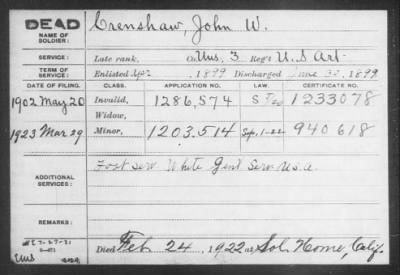 DEAD
NAME OF SOLDIER:
Crenshaw, John W.
SERVICE:
Late rank, Co. Uns, 3 Reg't U.S Art
TERM OF SERVICE:
Enlisted 1899 Discharged June 30, 1899
DATE OF FILING. CLASS. APPLICATION NO. LAW. CERTIFICATE NO.
1902 May 20 Invalid, 1286,574 1233078
Widow,
1923 Mar 29 Minor, 1203.514 940618
ADDITIONAL SERVICES:
White Genl Serv U.S.A.
REMARKS:
Died Feb 24, 1922 at Sol. Home, Calif.